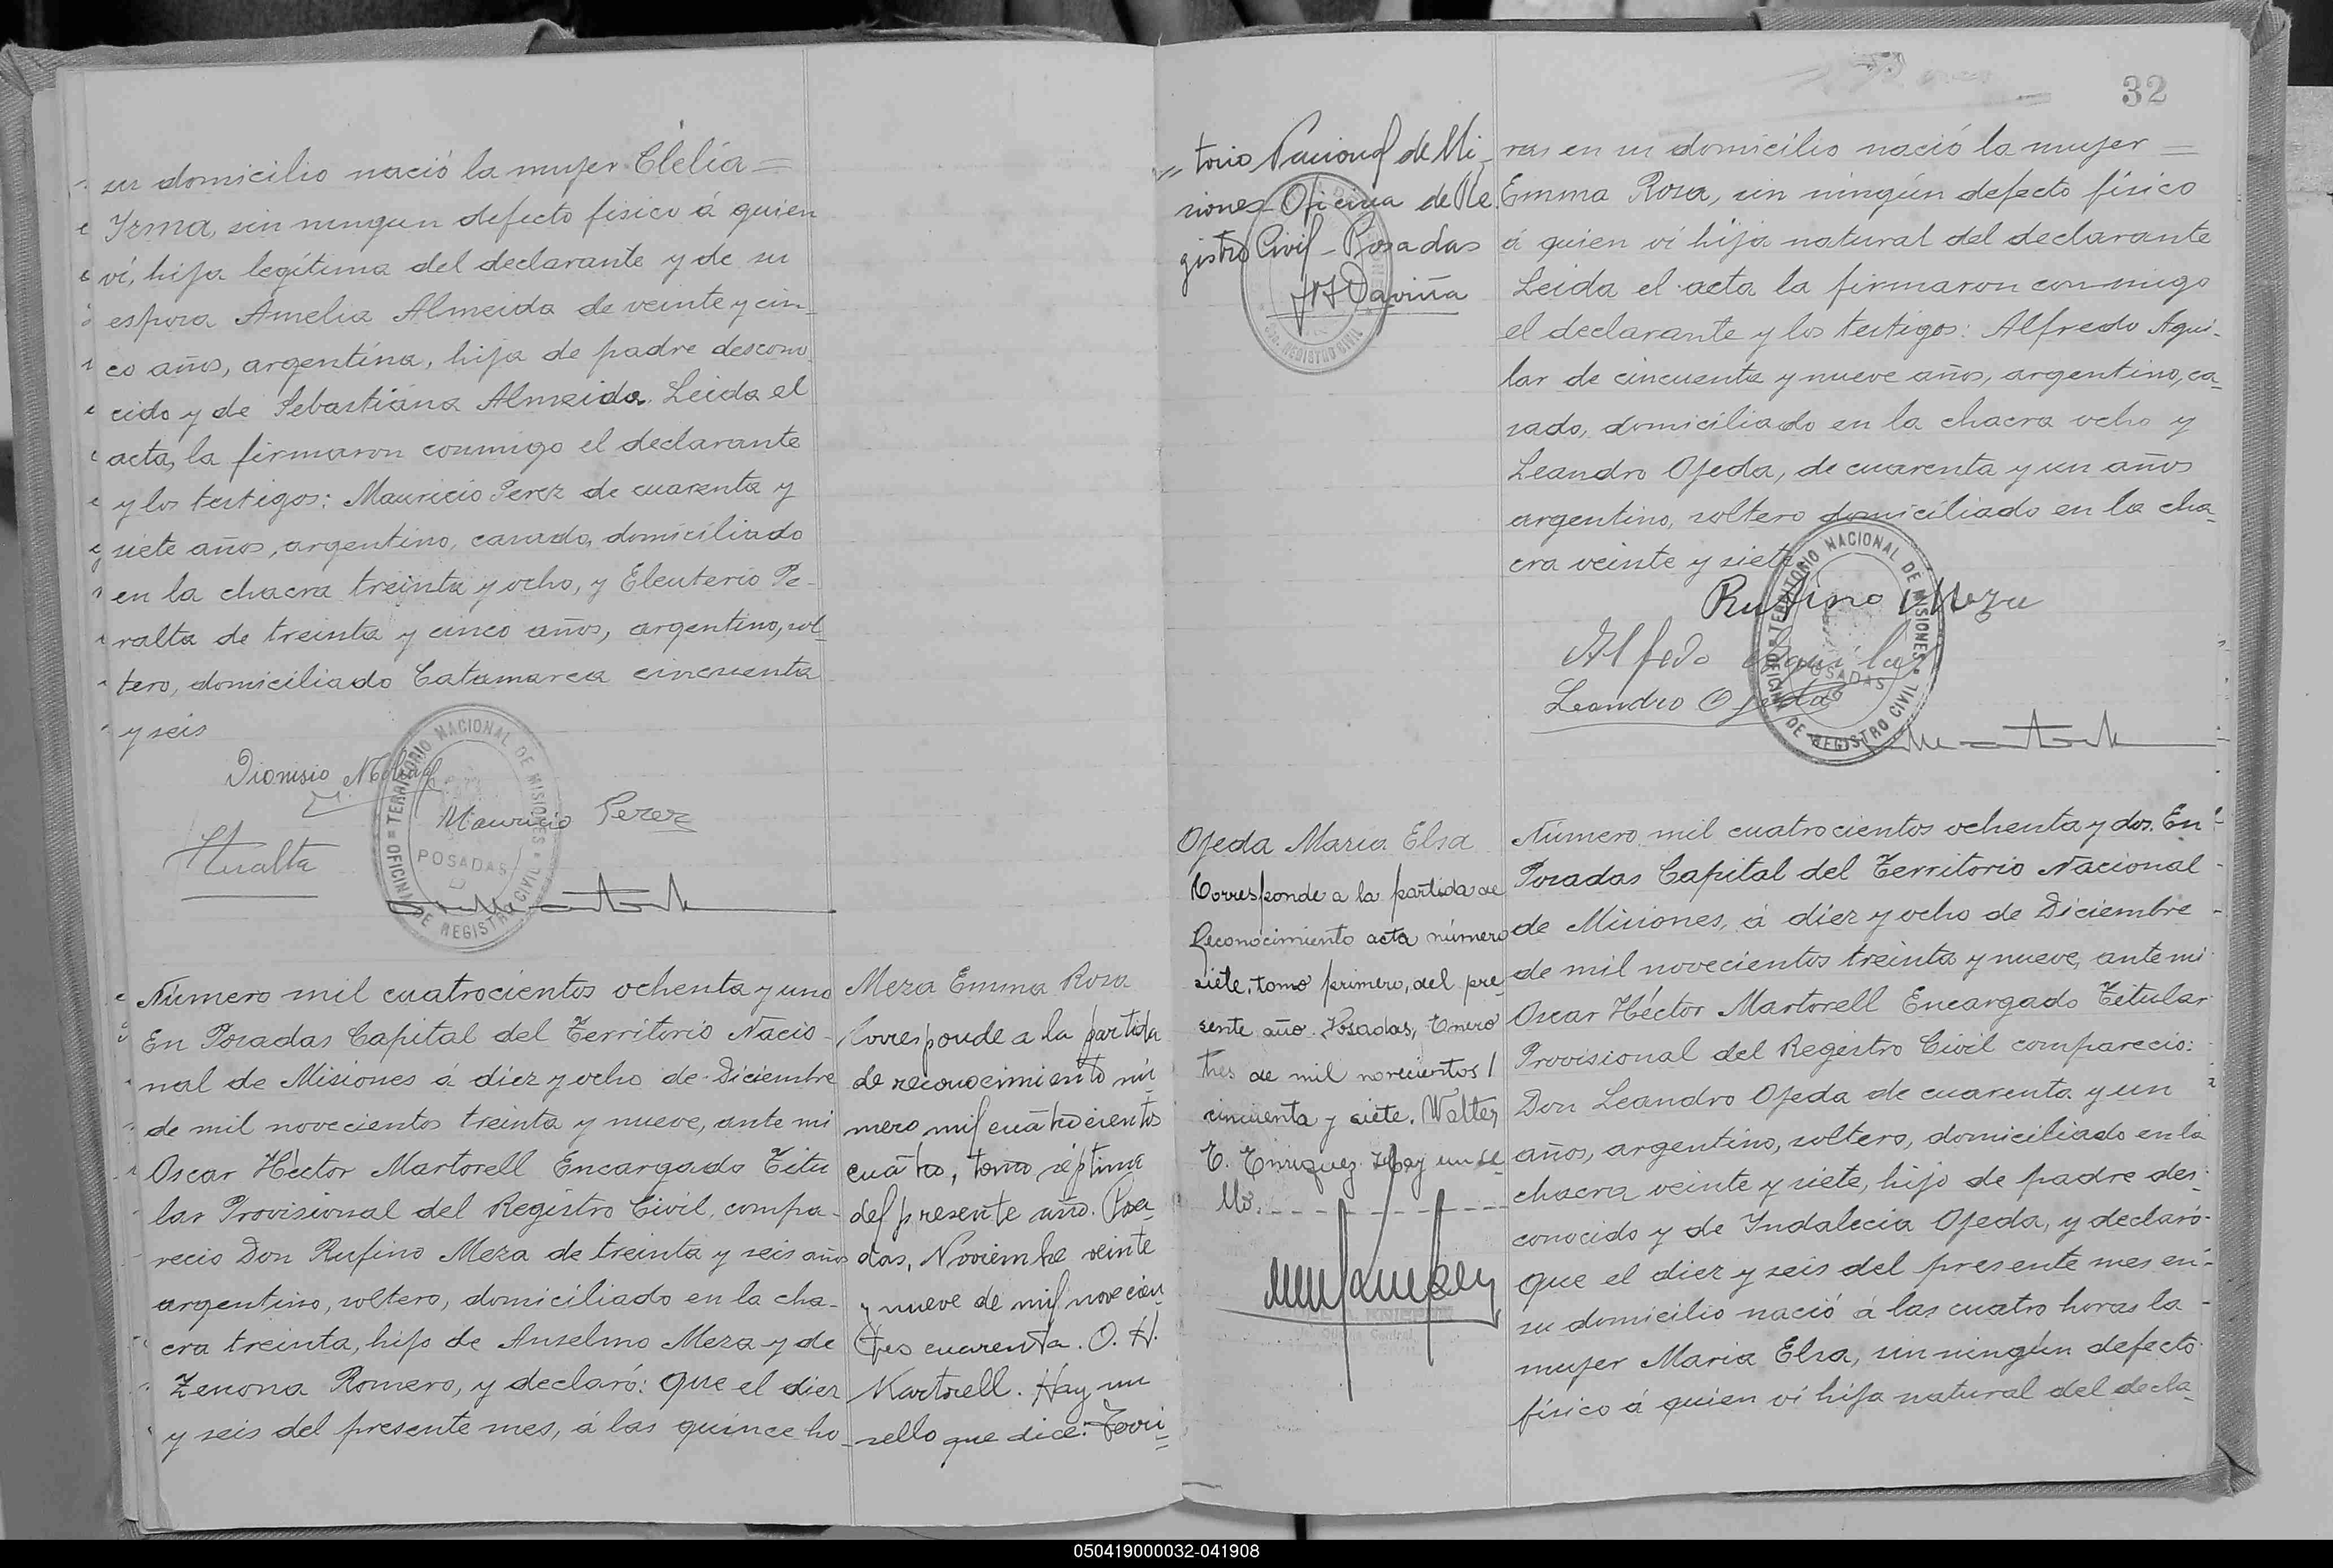 su domicilio nació la mujer Clelia =
Irma, sin ningun defecto fisico á quien
ví, hija legítima del declarante y de su
esposa Amelia Almeida de veinte y cin_
co años, argentina, hija de padre descono_
cido y de Sebastiana Almeida. Leida el
acta, la firmaron conmigo el declarante
y los testigos: Mauricio Perez de cuarenta y
siete años, argentino, casado, domiciliado
en la chacra treinta y ocho, y Eleuterio Pe-
ralta de treinta y cinco años, argentino, sol_
tero, domiciliado Catamarca cincuenta
y seis
Dionisio
Mauricio Perez
TERRITORIO NACIONAL DE MISIONES
POSADAS
OFICINA DE REGISTRO CIVIL
Número mil cuatrocientos ochenta y uno
En Posadas Capital del Territorio Nacio_
nal de Misiones á diez y ocho de Diciembre
de mil novecientos treinta y nueve, ante mi
Oscar Héctor Martorell Encargado Titu
lar Provisional del Registro Civil, compa-
recio Don Rufino Meza de treinta y seis años
argentino, soltero, domiciliado en la cha-
cra treinta, hijo de Anselmo Meza y de
Zenona Romero, y declaró: que el diez
y seis del presente mes, á las quince ho_
Meza Emma Rosa
Corresponde a la partida
de reconocimiento nú
mero mil cuatrocientos
cuatro, tomo séptimo
del presente año. Posa-
das, Noviembre veinte
y nueve de mil novecien
tos cuarenta. O. H.
Martorell. Hay un
sello que dice: Terri
=
32
= torio Nacional de Mi_
siones Oficina de Re
gistro Civil - Posadas
REGISTRO CIVIL
ras en su domicilio nació la mujer =
Emma Rosa, sin ningún defecto físico
á quien ví hija natural del declarante
Leida el acta la firmaron conmigo
el declarante y los testigos: Alfredo Agui-
lar de cincuenta y nueve años, argentino, ca_
sado, domiciliado en la chacra ocho y
Leandro Ojeda, de cuarenta y un años
argentino, soltero domiciliado en la cha_
cra veinte y siete
Rufino Meza
Alfedo Aguilar
Leandro Ojeda
TERRITORIO NACIONAL DE MISIONES
POSADAS
OFICINA DE REGISTRO CIVIL
Ojeda Maria Elsa
Corresponde a la partida de
Reconocimiento acta número
siete, tomo primero, del pre
sente año. Posadas, Enero
tres de mil novecientos /
cincuenta y siete. Walter
E. Enriquez. Hay un se
llo.
Número mil cuatrocientos ochenta y dos. En
Posadas Capital del Territorio Nacional
de Misiones, á diez y ocho de Diciembre
de mil novecientos treinta y nueve, ante mi
Oscar Héctor Martorell Encargado Titular
Provisional del Registro Civil comparecio:
Don Leandro Ojeda de cuarenta y un
años, argentino, soltero, domiciliado en la
chacra veinte y siete, hijo de padre des-
conocido y de Indalecia Ojeda, y declaró
que el diez y seis del presente mes en
su domicilio nació á las cuatro horas la
mujer Maria Elsa, sin ningún defecto
físico á quien ví hija natural del decla_
050419000032-041908